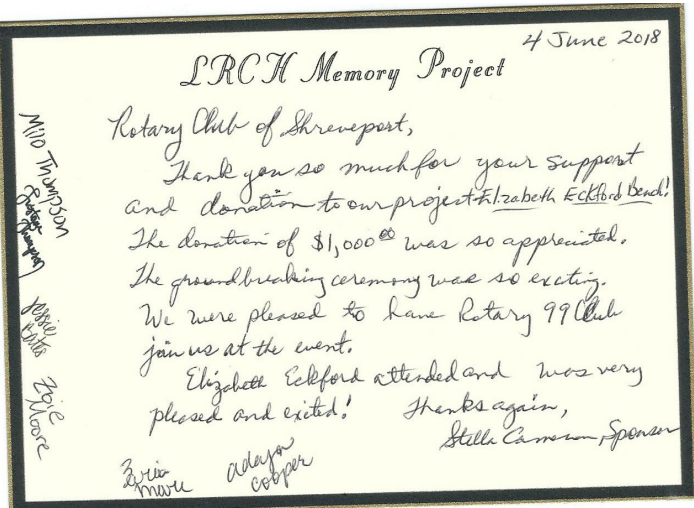 4 June 2018
LRCH Memory Project
Rotary Club of Shreveport,
Thank you so much for your support
and donation to our project Elizabeth Eckford Bench!
The donation of $1,000⁰⁰ was so appreciated.
The groundbreaking ceremony was so exciting.
We were pleased to have Rotary 99 Club
join us at the event.
Elizabeth Eckford attended and was very
pleased and exited! Thanks again,
Stella Cameron, Sponsor
Milo Thompson
Thompson
Jessie Bates
Zoie Moore
Moore
Adaja Cooper